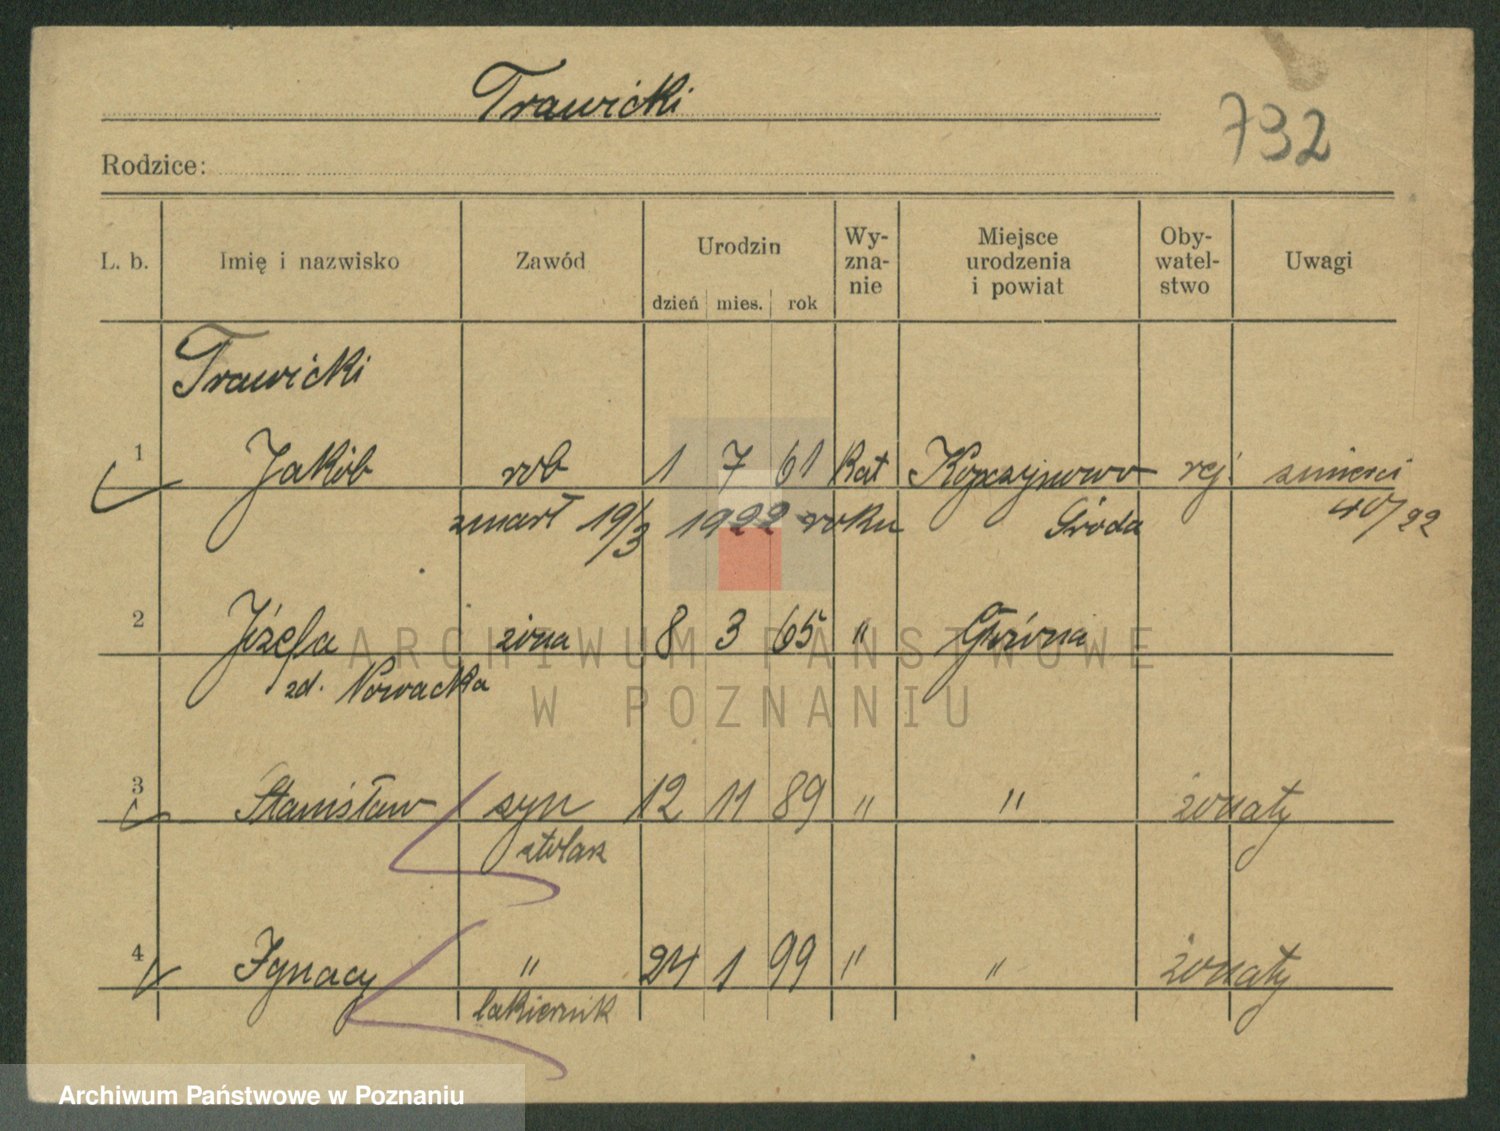 Trawicki
732
Rodzice:
L. b. Imię i nazwisko Zawód Urodzin dzień mies. rok Wy-zna-nie Miejsce urodzenia i powiat Oby-watel-stwo Uwagi
Trawicki
1 Jakób rob 1 7 61 Kat Kopczynowo rej. śmierci
zmarł 19/3 1922 roku Środa 40/22
2 Józefa żona 8 3 65 " Główna
zd. Nowacka
ARCHIWUM PAŃSTWOWE
W POZNANIU
3 Stanisław syn 12 11 89 " " żonaty
stolarz
4 Ignacy " 24 1 99 " " żonaty
lakiernik
Archiwum Państwowe w Poznaniu